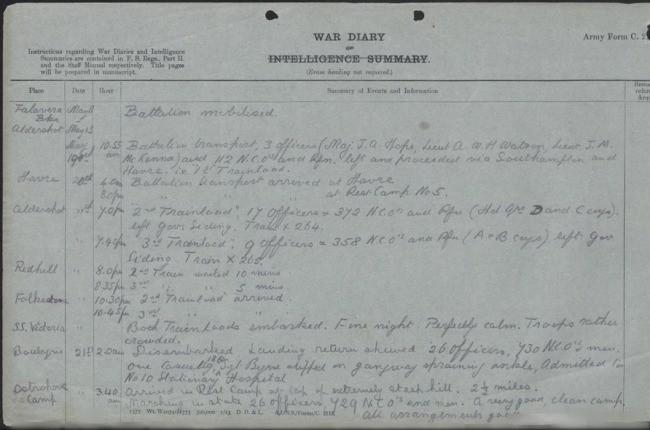 WAR DIARY
OR
INTELLIGENCE SUMMARY.
(Erase heading not required.)
Army Form C. 2
Instructions regarding War Diaries and Intelligence
Summaries are contained in F. S. Regs., Part II.
and the Staff Manual respectively. Title pages
will be prepared in manuscript.
Place Date Hour Summary of Events and Information
Talavera May 11 Battalion mobilised.
Aldershot May 13
May 19th 10.55 am Battalion transport, 3 officers (Maj. J.A. Hope, Lieut A.W.H Watson, Lieut. J.M.
McKenna) and 112 N.C.O's and Rfn. left and proceeded via Southampton and
Havre. i.e. 1st Trainload.
Havre 20th Battalion transport arrived at Havre
" " " at Rest Camp No 5.
Aldershot " 7.0pm "2nd Trainload" 17 Officers = 372 N.C.O's and Rfn (Hd Qrs D and C coys).
left Govt Siding. Train X 264.
" 7.45pm "3rd Trainload", 9 Officers = 358 N.C.O's and Rfn (A + B coys) left Govt
Siding. Train X 265.
Redhill " 8.0pm 2nd Train waited 10 mins.
8.35pm 3rd " " 5 mins.
Folkestone " 10.30pm 2nd Trainload arrived.
10.45pm 3rd " "
SS. Victoria " Both Trainloads embarked. Fine night. Perfectly calm. Troops rather
crowded.
Boulogne 21st 2.0am Disembarked. Landing return shewed 26 officers, 730 N.C.O's men.
one casualty, Sgt Byrne slipped on gangway spraining ankle, Admitted to
No 10 Stationary Hospital
Camp " 3.40 am Arrived in Rest Camp at top of extremely steep hill. 2½ miles.
Marching in state 26 officers, 729 N.C.O's and men. A very good, clean camp.
All arrangements good